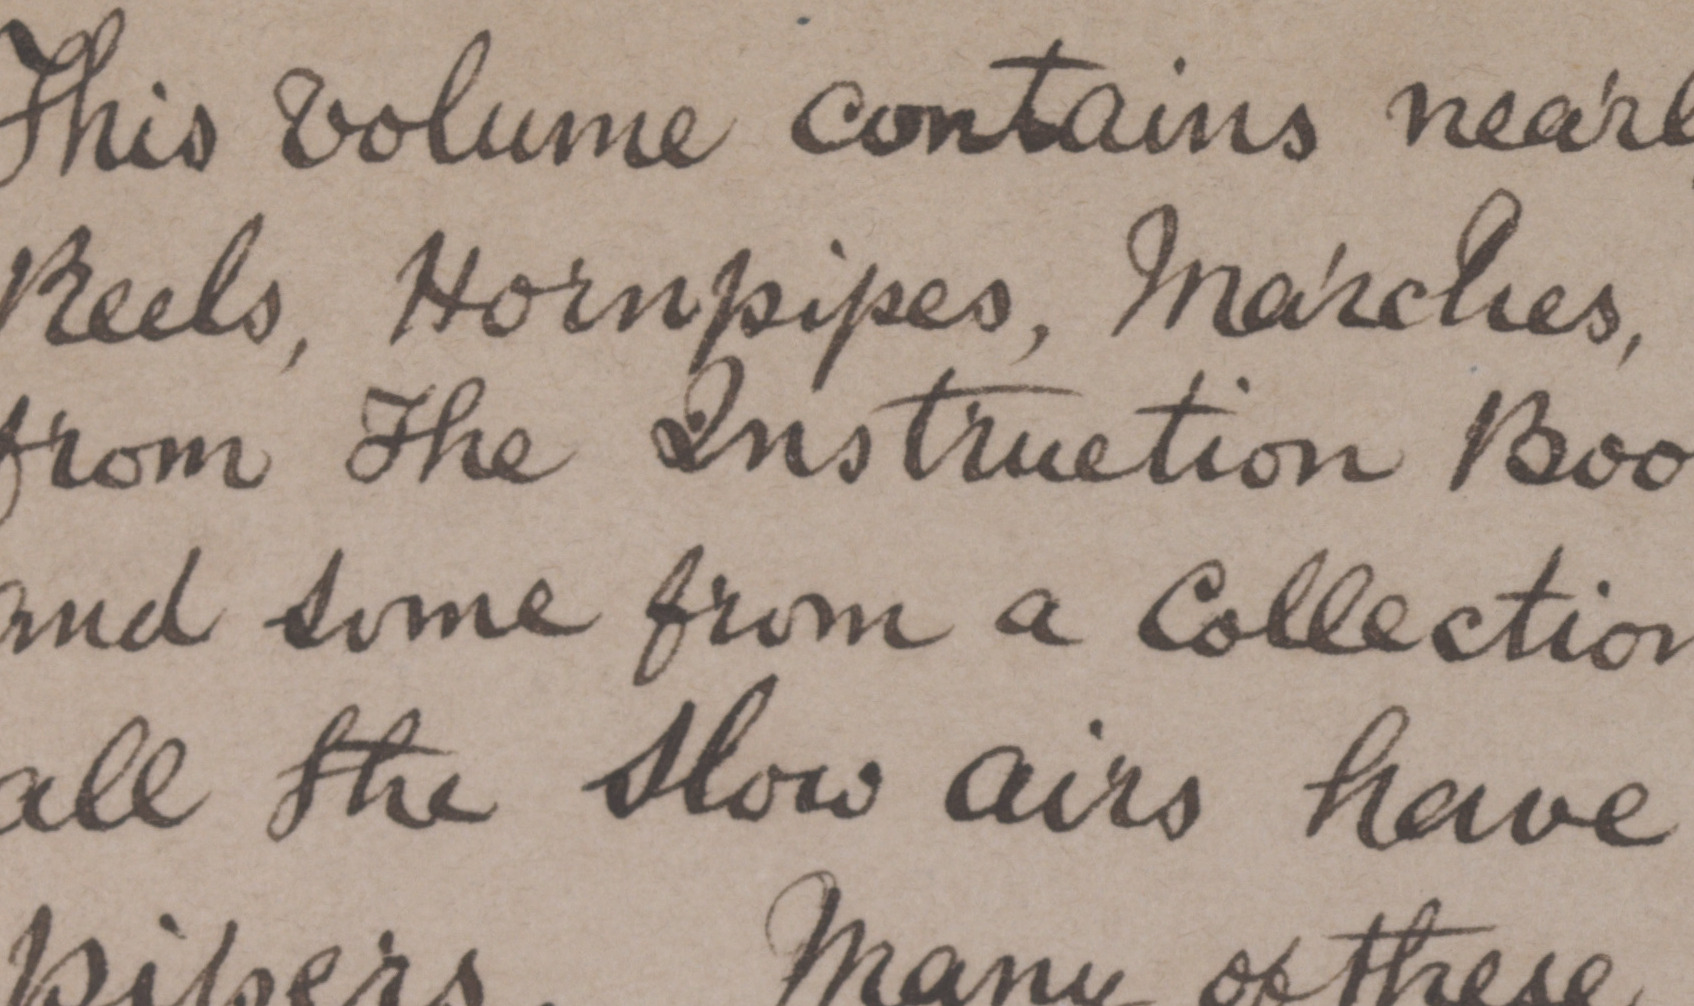 This volume contains nearl
Reels, Hornpipes, Marches,
from The Instruction Boo
and some from a Collection
all the slow airs have
pipers. Many of these